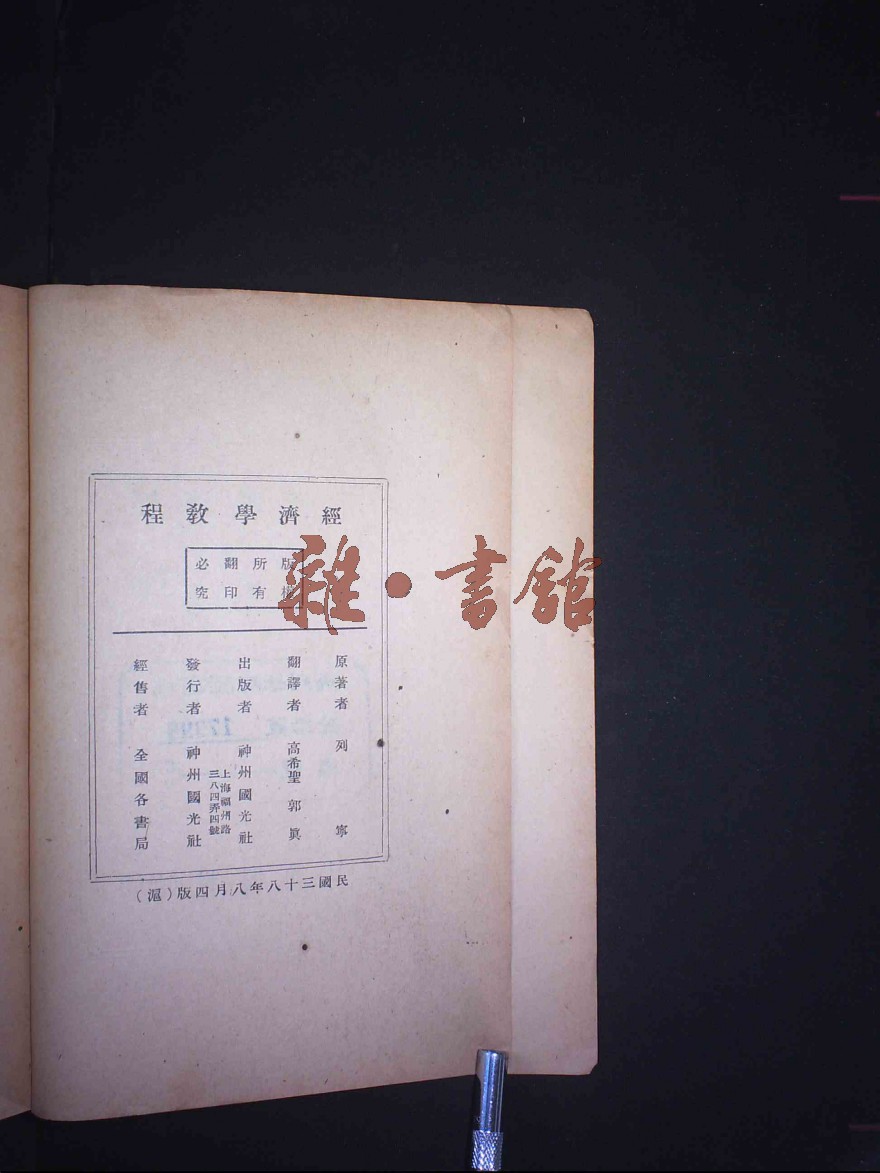 經濟學教程
版權所有
翻印必究
原著者 列寧
翻譯者 高希聖 郭真
出版者 神州國光社
上海福州路
三八四弄四號
發行者 神州國光社
經售者 全國各書局
民國三十八年八月四版（滬）
雜·書館